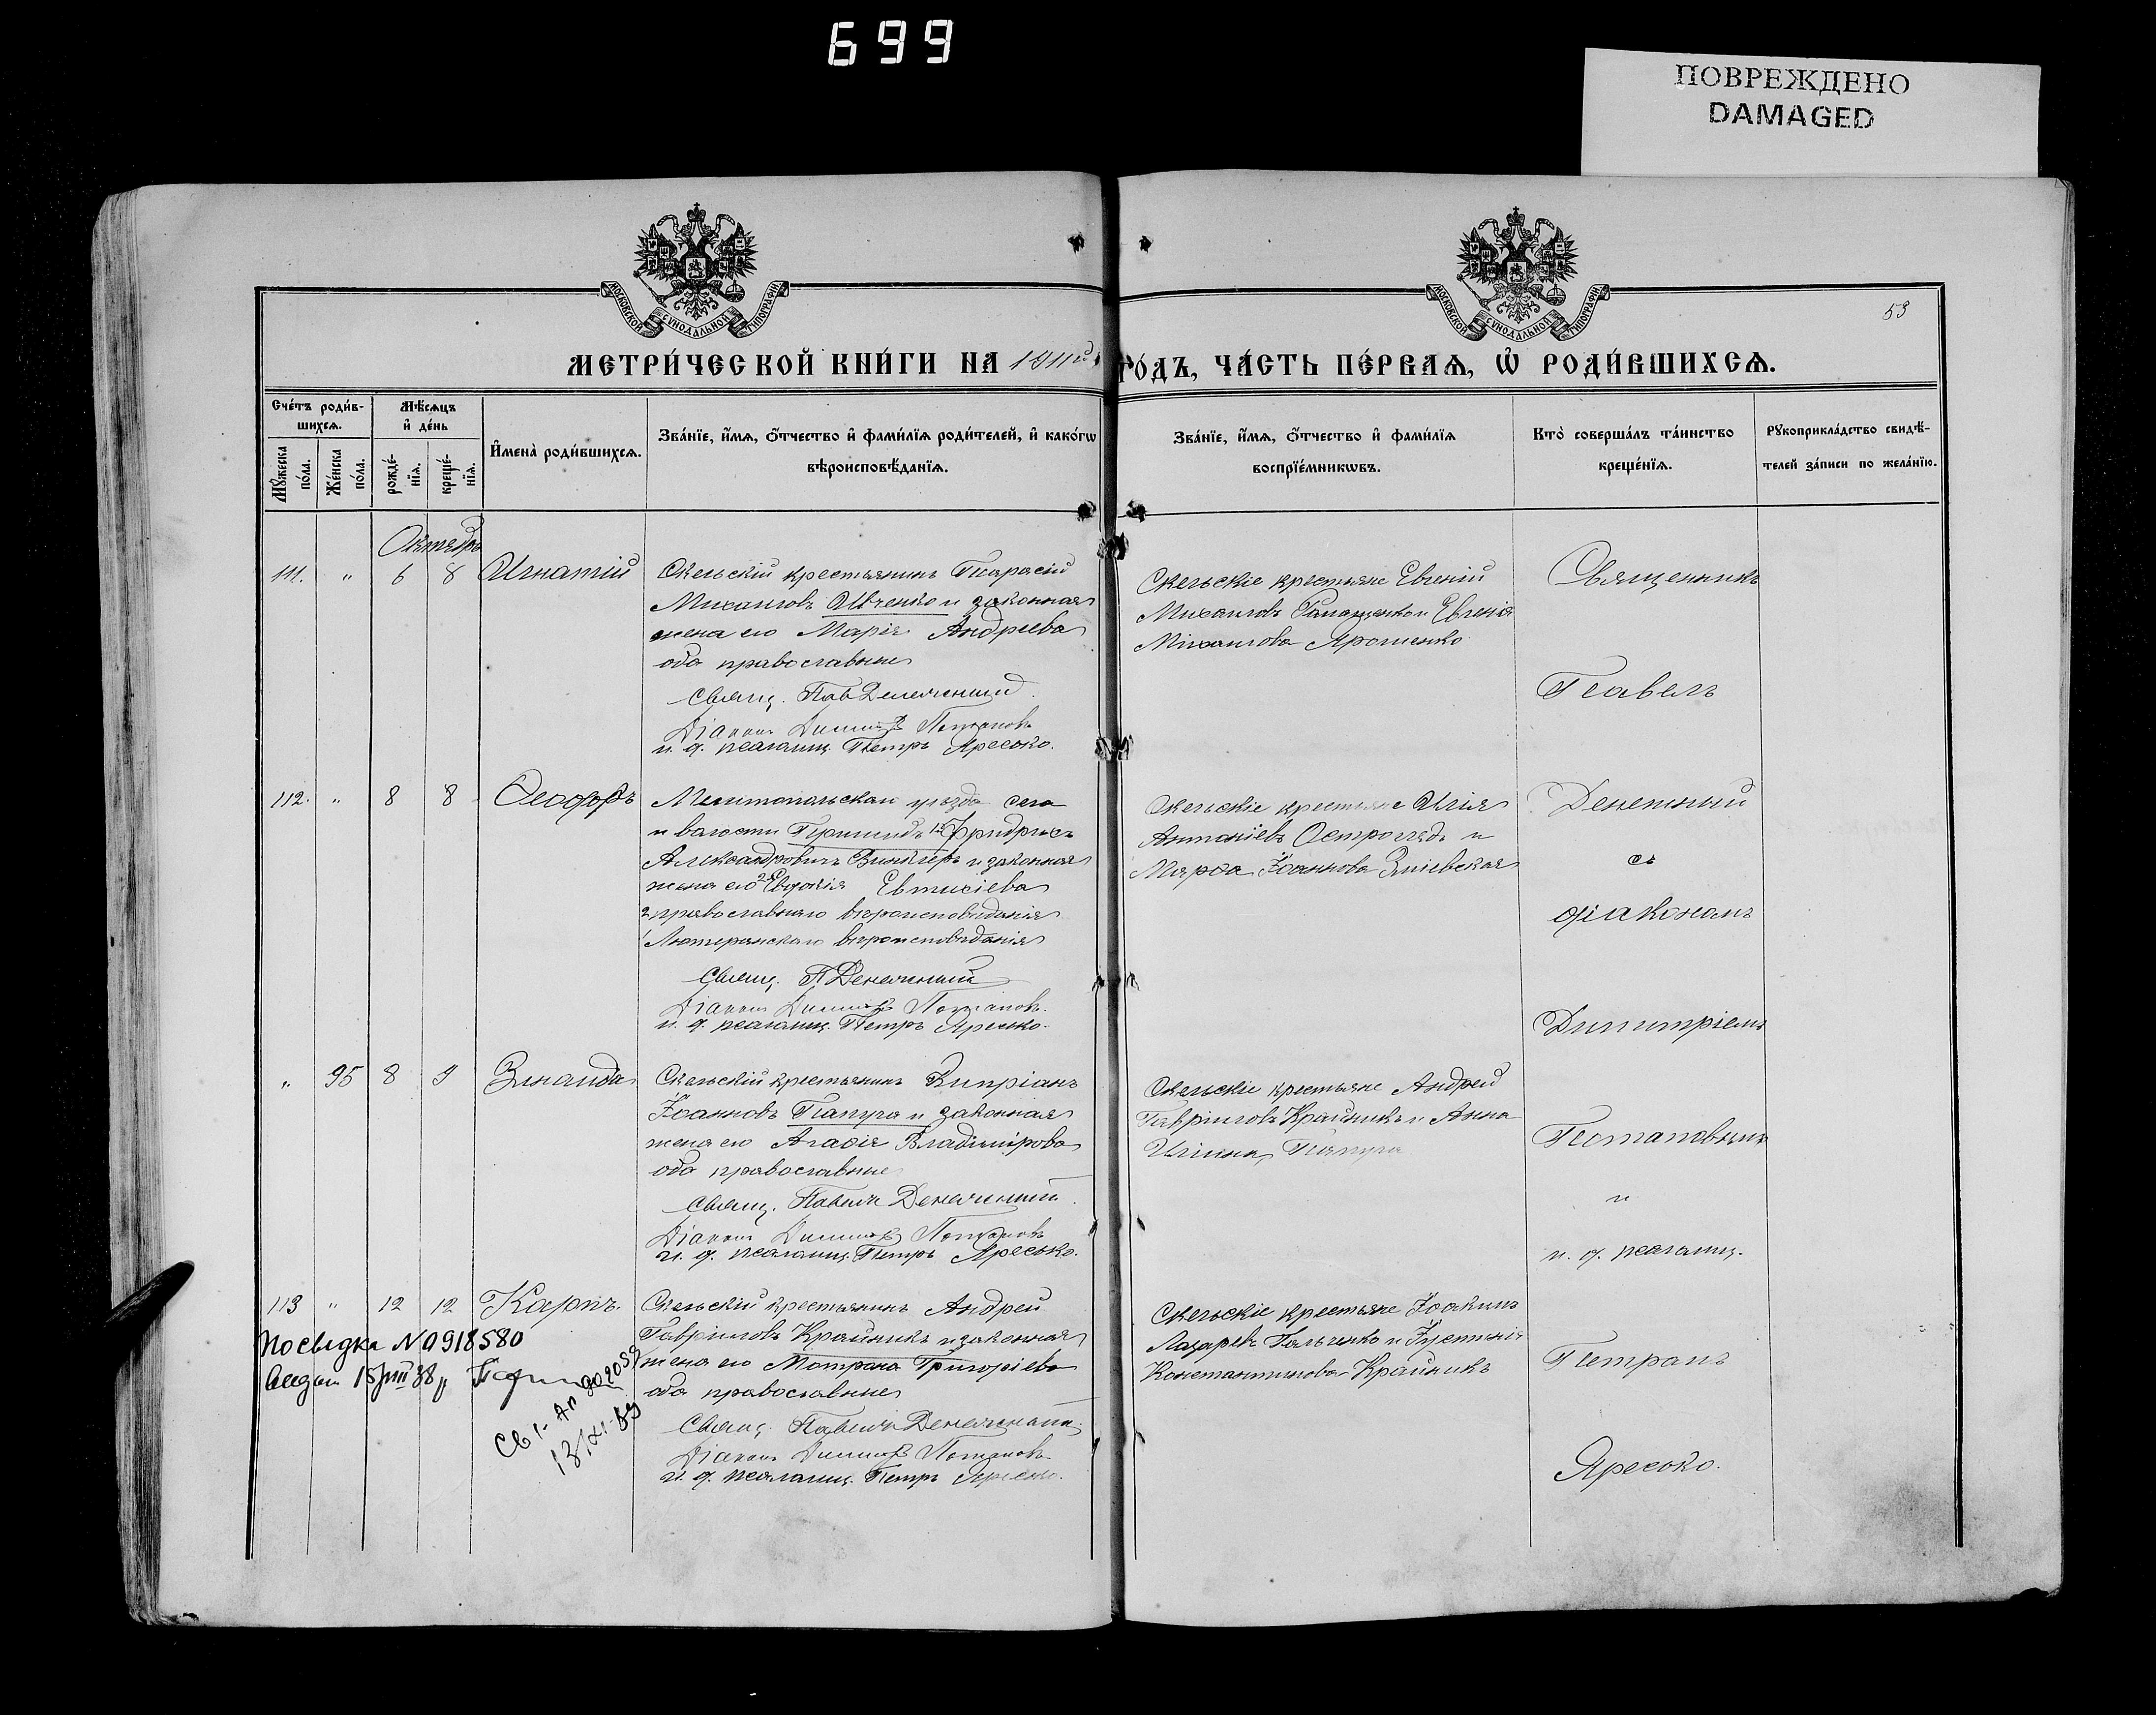 699
ПОВРЕЖДЕНО
DAMAGED
МОСКОВСКОЙ СѴНОДАЛЬНОЙ ТИПОГРАФІИ
МОСКОВСКОЙ СѴНОДАЛЬНОЙ ТИПОГРАФІИ
53
МЕТРИ́ЧЕСКОЙ КНИ́ГИ НА 1911й
ГО́ДЪ, ЧА́СТЬ ПЕ́РВАѦ, Ѡ҆ РОДИ́ВШИХСѦ.
Сче́тъ роди́в-
шихсѧ.
Мꙋ́жеска по́ла.
Же́нска по́ла.
Мѣ́сѧцъ
и҆ де́нь
рожде́-
нїѧ.
креще́-
нїѧ.
И҆мена̀ роди́вшихсѧ.
Зва́нїе, и҆́мѧ, ѻ҆́тчество и҆ фами́лїѧ роди́телей, и҆ како́гѡ
вѣроисповѣ́данїѧ.
Зва́нїе, и҆́мѧ, ѻ҆́тчество и҆ фами́лїѧ
воспрїе́мникѡвъ.
Кто̀ соверша́лъ та́инство
креще́нїѧ.
Рꙋкоприкла́дство свидѣ́-
телей за́писи по жела́нїю.
Октябрь
111. " 6 8 Игнатій
Скельскій крестьянинъ Тарасій
Михаиловъ Ивченко и законная
жена его Марія Андреева
оба православные
Свящ. Пав Денежный
Діаконъ Димитр Потаповъ
и. д. псаломщ. Петръ Яресько.
Скельскіе крестьяне Евгеній
Михаиловъ и Евгенія
Михаилова Ярошенко
Священникъ
Павелъ
112. " 8 8 Ѳеодоръ
Мелитопольскаго уѣзда села
и волости 1 Фридрихъ
Александровичъ и законная
жена его 2 Евдокія Евтихіева
2 православнаго вѣроисповѣданія
1 Лютеранскаго вѣроисповѣданія
Свящ. П Денежный
Діаконъ Димитр Потаповъ
и. д. псаломщ. Петръ Яресько.
Скельскіе крестьяне Илія
Антоніевъ Остроглядъ и
Марѳа Іоаннова Зміевская
Денежный
съ
діакономъ
Димитріемъ
" 95 8 9 Зинаида
Скельскій крестьянинъ Кипріанъ
Іоанновъ Папуга и законная
жена его Агаѳія Владимірова
оба православные
Свящ. Павелъ Денежный
Діаконъ Димитр Потаповъ
и. д. псаломщ. Петръ Яресько.
Скельскіе крестьяне Андрей
Гавріиловъ Крайникъ и Анна
Иліина Папуга
Потаповымъ
и
и. д. псаломщ.
113 " 12 12 Карпъ.
Скельскій крестьянинъ Андрей
Гавріиловъ Крайникъ и законная
жена его Мотрона Григоріева
оба православные
Свящ. Павелъ Денежный
Діаконъ Димитр Потаповъ
и. д. псаломщ. Петръ Яресько.
Скельскіе крестьяне Іоакимъ
Лазаревъ Гальченко и Іустинія
Константинова Крайникъ
Петромъ
Яресько.
Посвідка N 0918580